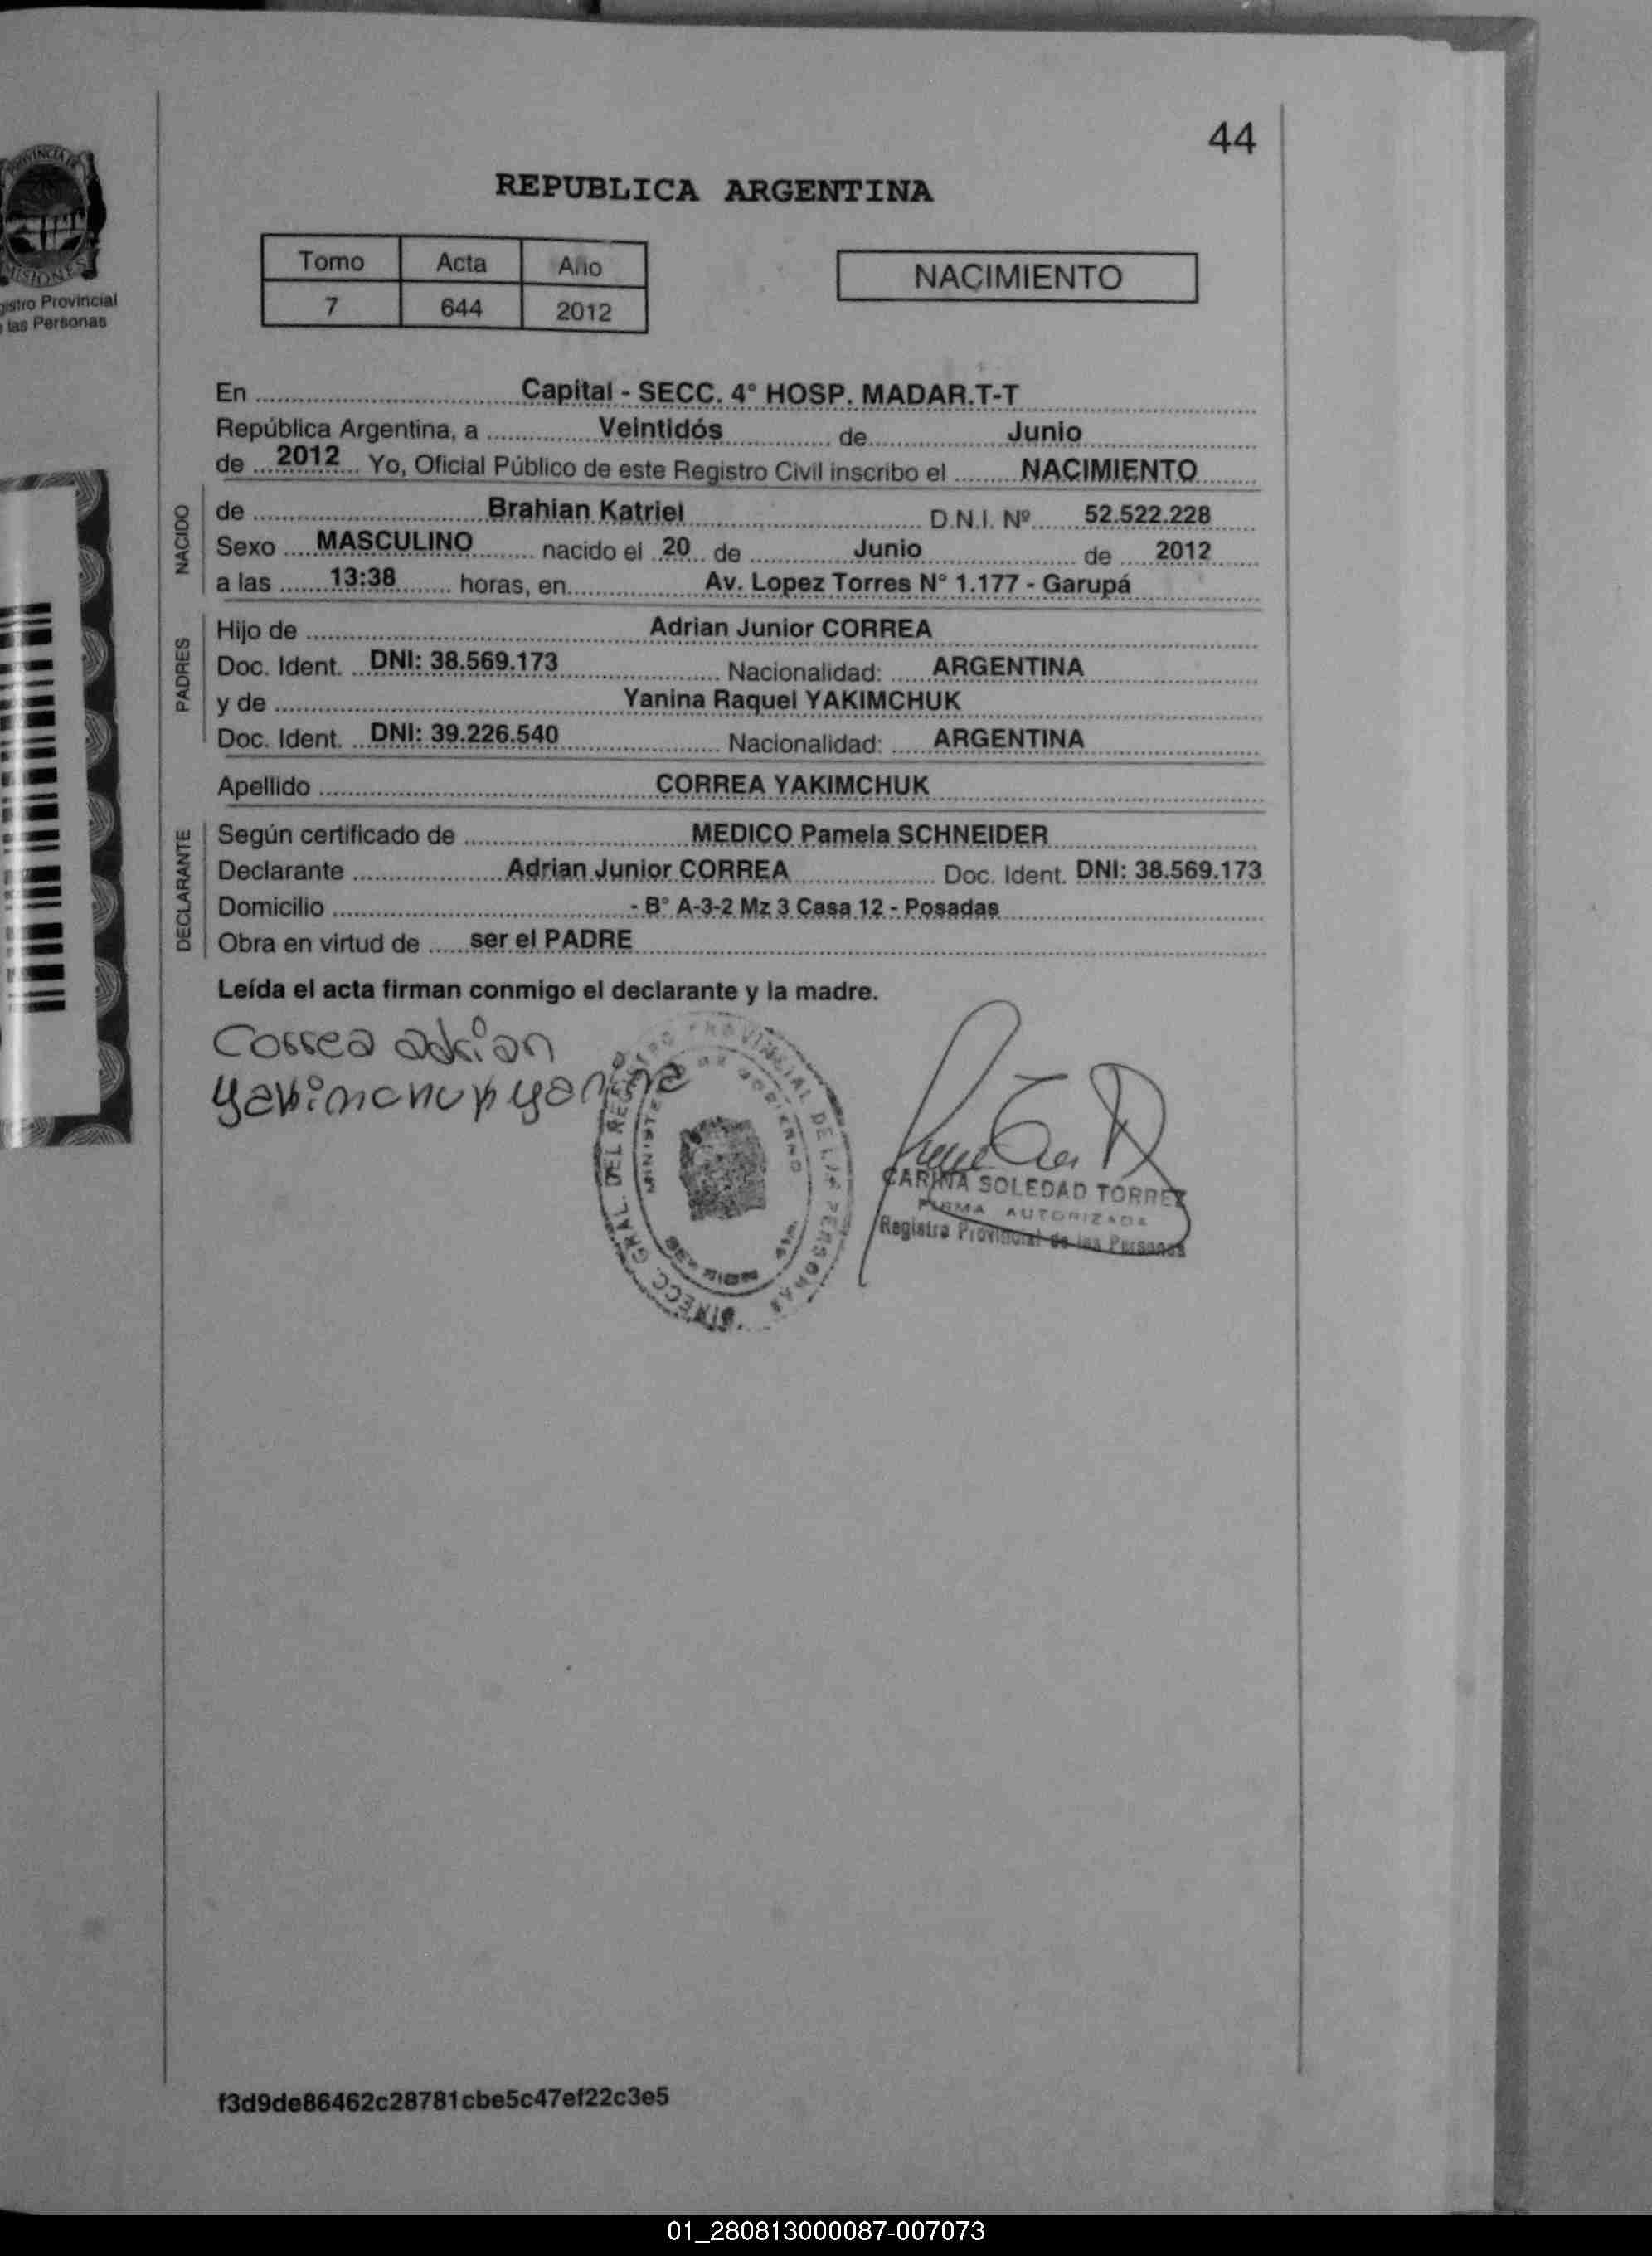 44
PROVINCIA DE
MISIONES
gistro Provincial
las Personas
REPUBLICA ARGENTINA
Tomo Acta Año
7 644 2012
NACIMIENTO
En Capital - SECC. 4° HOSP. MADAR.T-T
República Argentina, a Veintidós de Junio
de 2012 Yo, Oficial Público de este Registro Civil inscribo el NACIMIENTO
NACIDO
de Brahian Katriel D.N.I. Nº 52.522.228
Sexo MASCULINO nacido el 20 de Junio de 2012
a las 13:38 horas, en Av. Lopez Torres N° 1.177 - Garupá
PADRES
Hijo de Adrian Junior CORREA
Doc. Ident. DNI: 38.569.173 Nacionalidad: ARGENTINA
y de Yanina Raquel YAKIMCHUK
Doc. Ident. DNI: 39.226.540 Nacionalidad: ARGENTINA
Apellido CORREA YAKIMCHUK
DECLARANTE
Según certificado de MEDICO Pamela SCHNEIDER
Declarante Adrian Junior CORREA Doc. Ident. DNI: 38.569.173
Domicilio - B° A-3-2 Mz 3 Casa 12 - Posadas
Obra en virtud de ser el PADRE
Leída el acta firman conmigo el declarante y la madre.
Correa adrian
yanina
GRAL. DEL PROVINCIAL DE PERSONAS
GOBIERNO
CARINA SOLEDAD TORREZ
FIRMA AUTORIZADA
Registro Provincial de las Personas
f3d9de86462c28781cbe5c47ef22c3e5
01_280813000087-007073